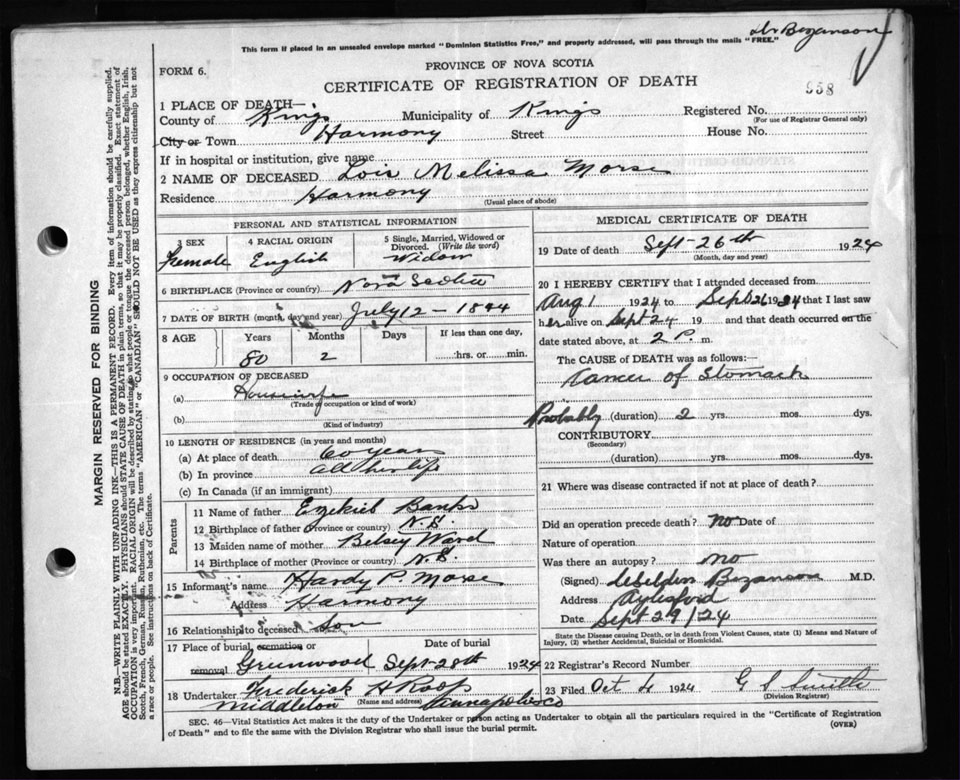 Dr Bezanson
This form if placed in an unsealed envelope marked "Dominion Statistics Free," and properly addressed, will pass through the mails "FREE."
FORM 6.
PROVINCE OF NOVA SCOTIA
CERTIFICATE OF REGISTRATION OF DEATH
958
1 PLACE OF DEATH—
County of Kings Municipality of Kings Registered No.
(For use of Registrar General only)
City or Town Harmony Street House No.
If in hospital or institution, give name
2 NAME OF DECEASED Lois Melissa Morse
Residence Harmony
(Usual place of abode)
PERSONAL AND STATISTICAL INFORMATION
3 SEX Female
4 RACIAL ORIGIN English
5 Single, Married, Widowed or Divorced. (Write the word) Widow
6 BIRTHPLACE (Province or country) Nova Scotia
7 DATE OF BIRTH (month, day and year) July 12 - 1844
8 AGE Years Months Days If less than one day,
80 2 hrs. or min.
9 OCCUPATION OF DECEASED
(a) Housewife
(Trade or occupation or kind of work)
(b)
(Kind of industry)
10 LENGTH OF RESIDENCE (in years and months)
(a) At place of death 60 years
(b) In province all her life
(c) In Canada (if an immigrant)
Parents
11 Name of father Ezekiel Banks
12 Birthplace of father (Province or country) N.S.
13 Maiden name of mother Betsey Ward
14 Birthplace of mother (Province or country) N.S.
15 Informant's name Hardy P. Morse
Address Harmony
16 Relationship to deceased Son
17 Place of burial cremation or removal Greenwood
Date of burial Sept 28th 1924
18 Undertaker Frederick H Roop
(Name and address)
Middleton Annapolis Co
MEDICAL CERTIFICATE OF DEATH
19 Date of death Sept - 26th 1924
(Month, day and year)
20 I HEREBY CERTIFY that I attended deceased from
Aug 1 1924 to Sept 26 1924 that I last saw
her alive on Sept 24 19 and that death occurred on the
date stated above, at 2 P. m.
The CAUSE OF DEATH was as follows:—
Cancer of Stomach
Probably (duration) 2 yrs. mos. dys.
CONTRIBUTORY
(Secondary)
(duration) yrs. mos. dys.
21 Where was disease contracted if not at place of death?
Did an operation precede death? no Date of
Nature of operation
Was there an autopsy? no
(Signed) Bezanson M.D.
Address Aylesford
Date Sept 29/24
State the Disease causing Death, or in death from Violent Causes, state (1) Means and Nature of Injury, (2) whether Accidental, Suicidal or Homicidal.
22 Registrar's Record Number
23 Filed Oct 4 1924 G S Smith
(Division Registrar)
SEC. 46—Vital Statistics Act makes it the duty of the Undertaker or person acting as Undertaker to obtain all the particulars required in the "Certificate of Registration
of Death" and to file the same with the Division Registrar who shall issue the burial permit.
(OVER)
MARGIN RESERVED FOR BINDING
N.B.—WRITE PLAINLY WITH UNFADING INK—THIS IS A PERMANENT RECORD. Every item of information should be carefully supplied.
AGE should be stated EXACTLY. PHYSICIANS should STATE CAUSE OF DEATH in plain terms, so that it may be properly classified. Exact statement of
OCCUPATION is very important. RACIAL ORIGIN will be described by stating to what people or tongue the deceased person belonged, whether English, Irish,
Scotch, French, German, Russian, Ruthenian, etc. The terms "AMERICAN" or "CANADIAN" SHOULD NOT BE USED as they express citizenship but not
a race or people. See instructions on back of Certificate.